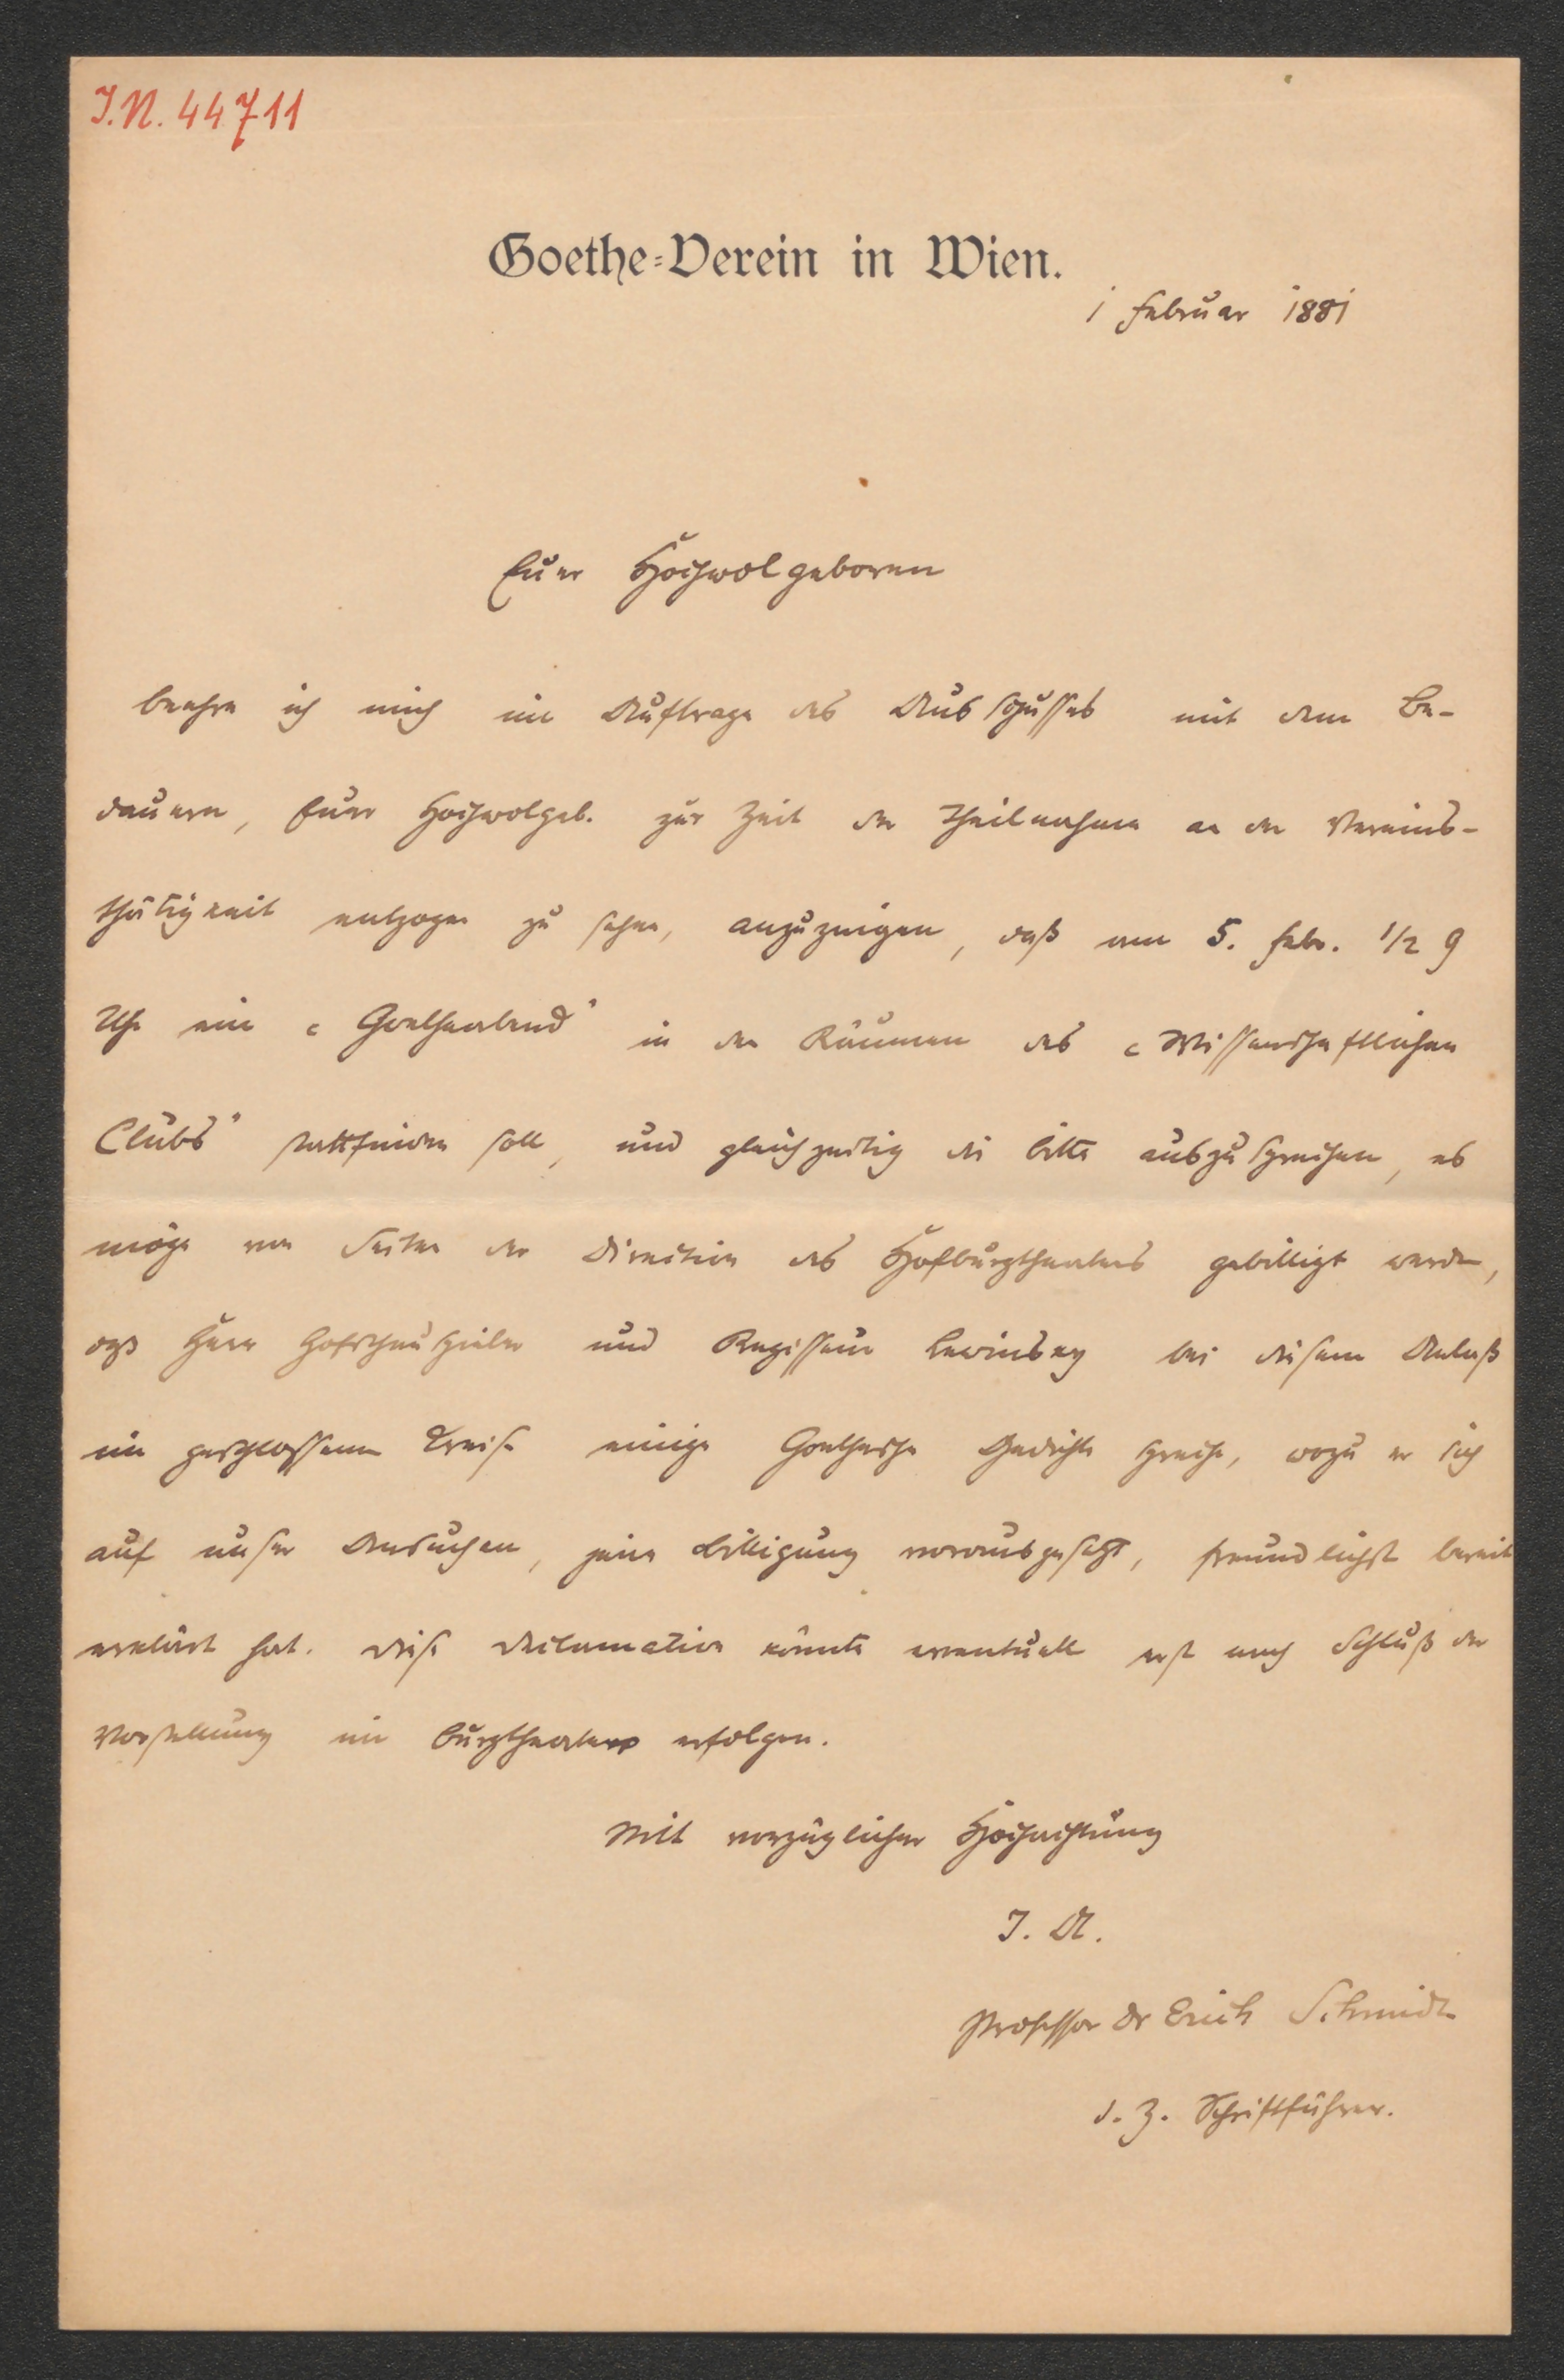 J.N. 44711
Goethe-Verein in Wien.
1 Februar 1881
Euer Hochwolgeboren
beehre ich mich im Auftrage des Ausschusses mit dem Be-
dauern, Euer Hochwolgeb. zur Zeit der Theilnahme an der Vereins-
thätigkeit entzogen zu sehen, anzuzeigen, daß am 5. Febr. 1/2 9
Uhr ein „Goetheabend" in den Räumen des „Wissenschaftlichen
Clubs" stattfinden soll, und gleichzeitig die Bitte auszusprechen, es
möge von Seiten der Direction des Hofburgtheaters gebilligt werden,
daß Herr Hofschauspieler und Regisseur Lewinsky bei diesem Anlaß
im geschlossenen Kreise einige Goethesche Gedichte spreche, wozu er sich
auf unser Ansuchen, jene Billigung vorausgesetzt, freundlichst bereit
erklärt hat. Diese Declamation könnte eventuell erst nach Schluß der
Vorstellung im Burgtheater erfolgen.
Mit vorzüglicher Hochachtung
J. A.
Professor Dr Erich Schmidt
d. Z. Schriftführer.